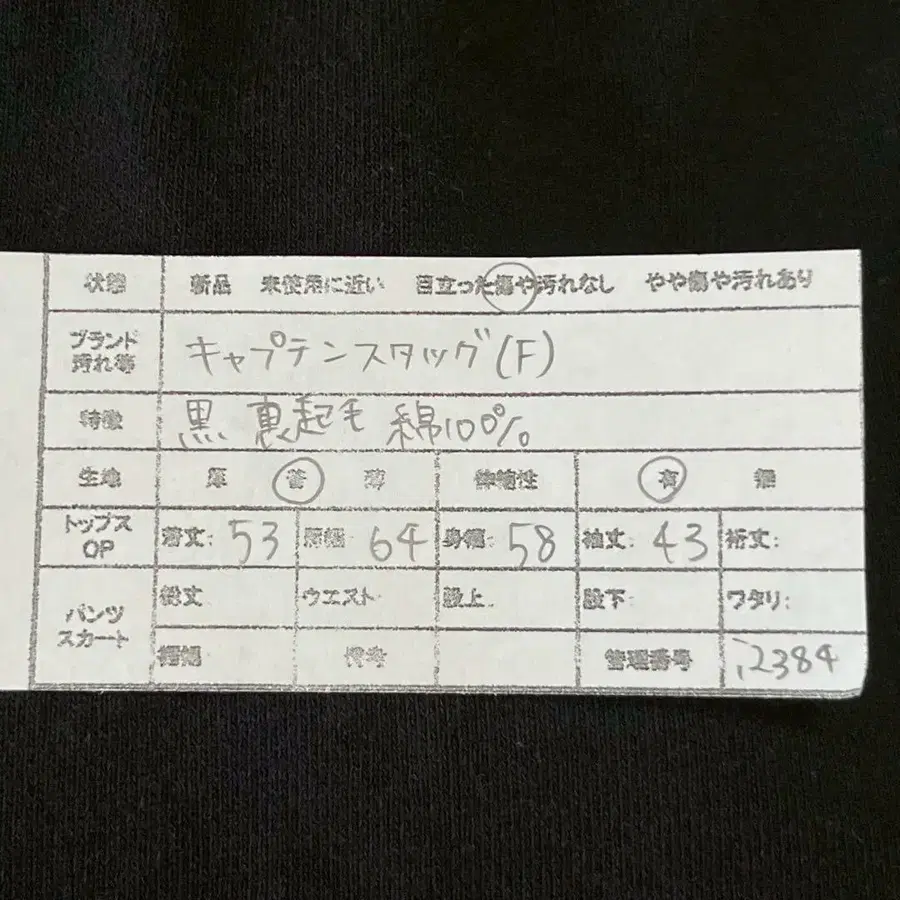 状態 新品 未使用に近い 目立った傷や汚れなし やや傷や汚れあり
ブランド
汚れ等
キャプテンスタッグ(F)
特徴 黒 裏起毛 綿100%
生地 厚 普 薄 伸縮性 有 無
トップス
OP
着丈: 53 肩幅: 64 身幅: 58 袖丈: 43 裄丈:
パンツ
スカート
総丈 ウエスト 股上 股下: ワタリ:
裾幅 備考 管理番号 2384